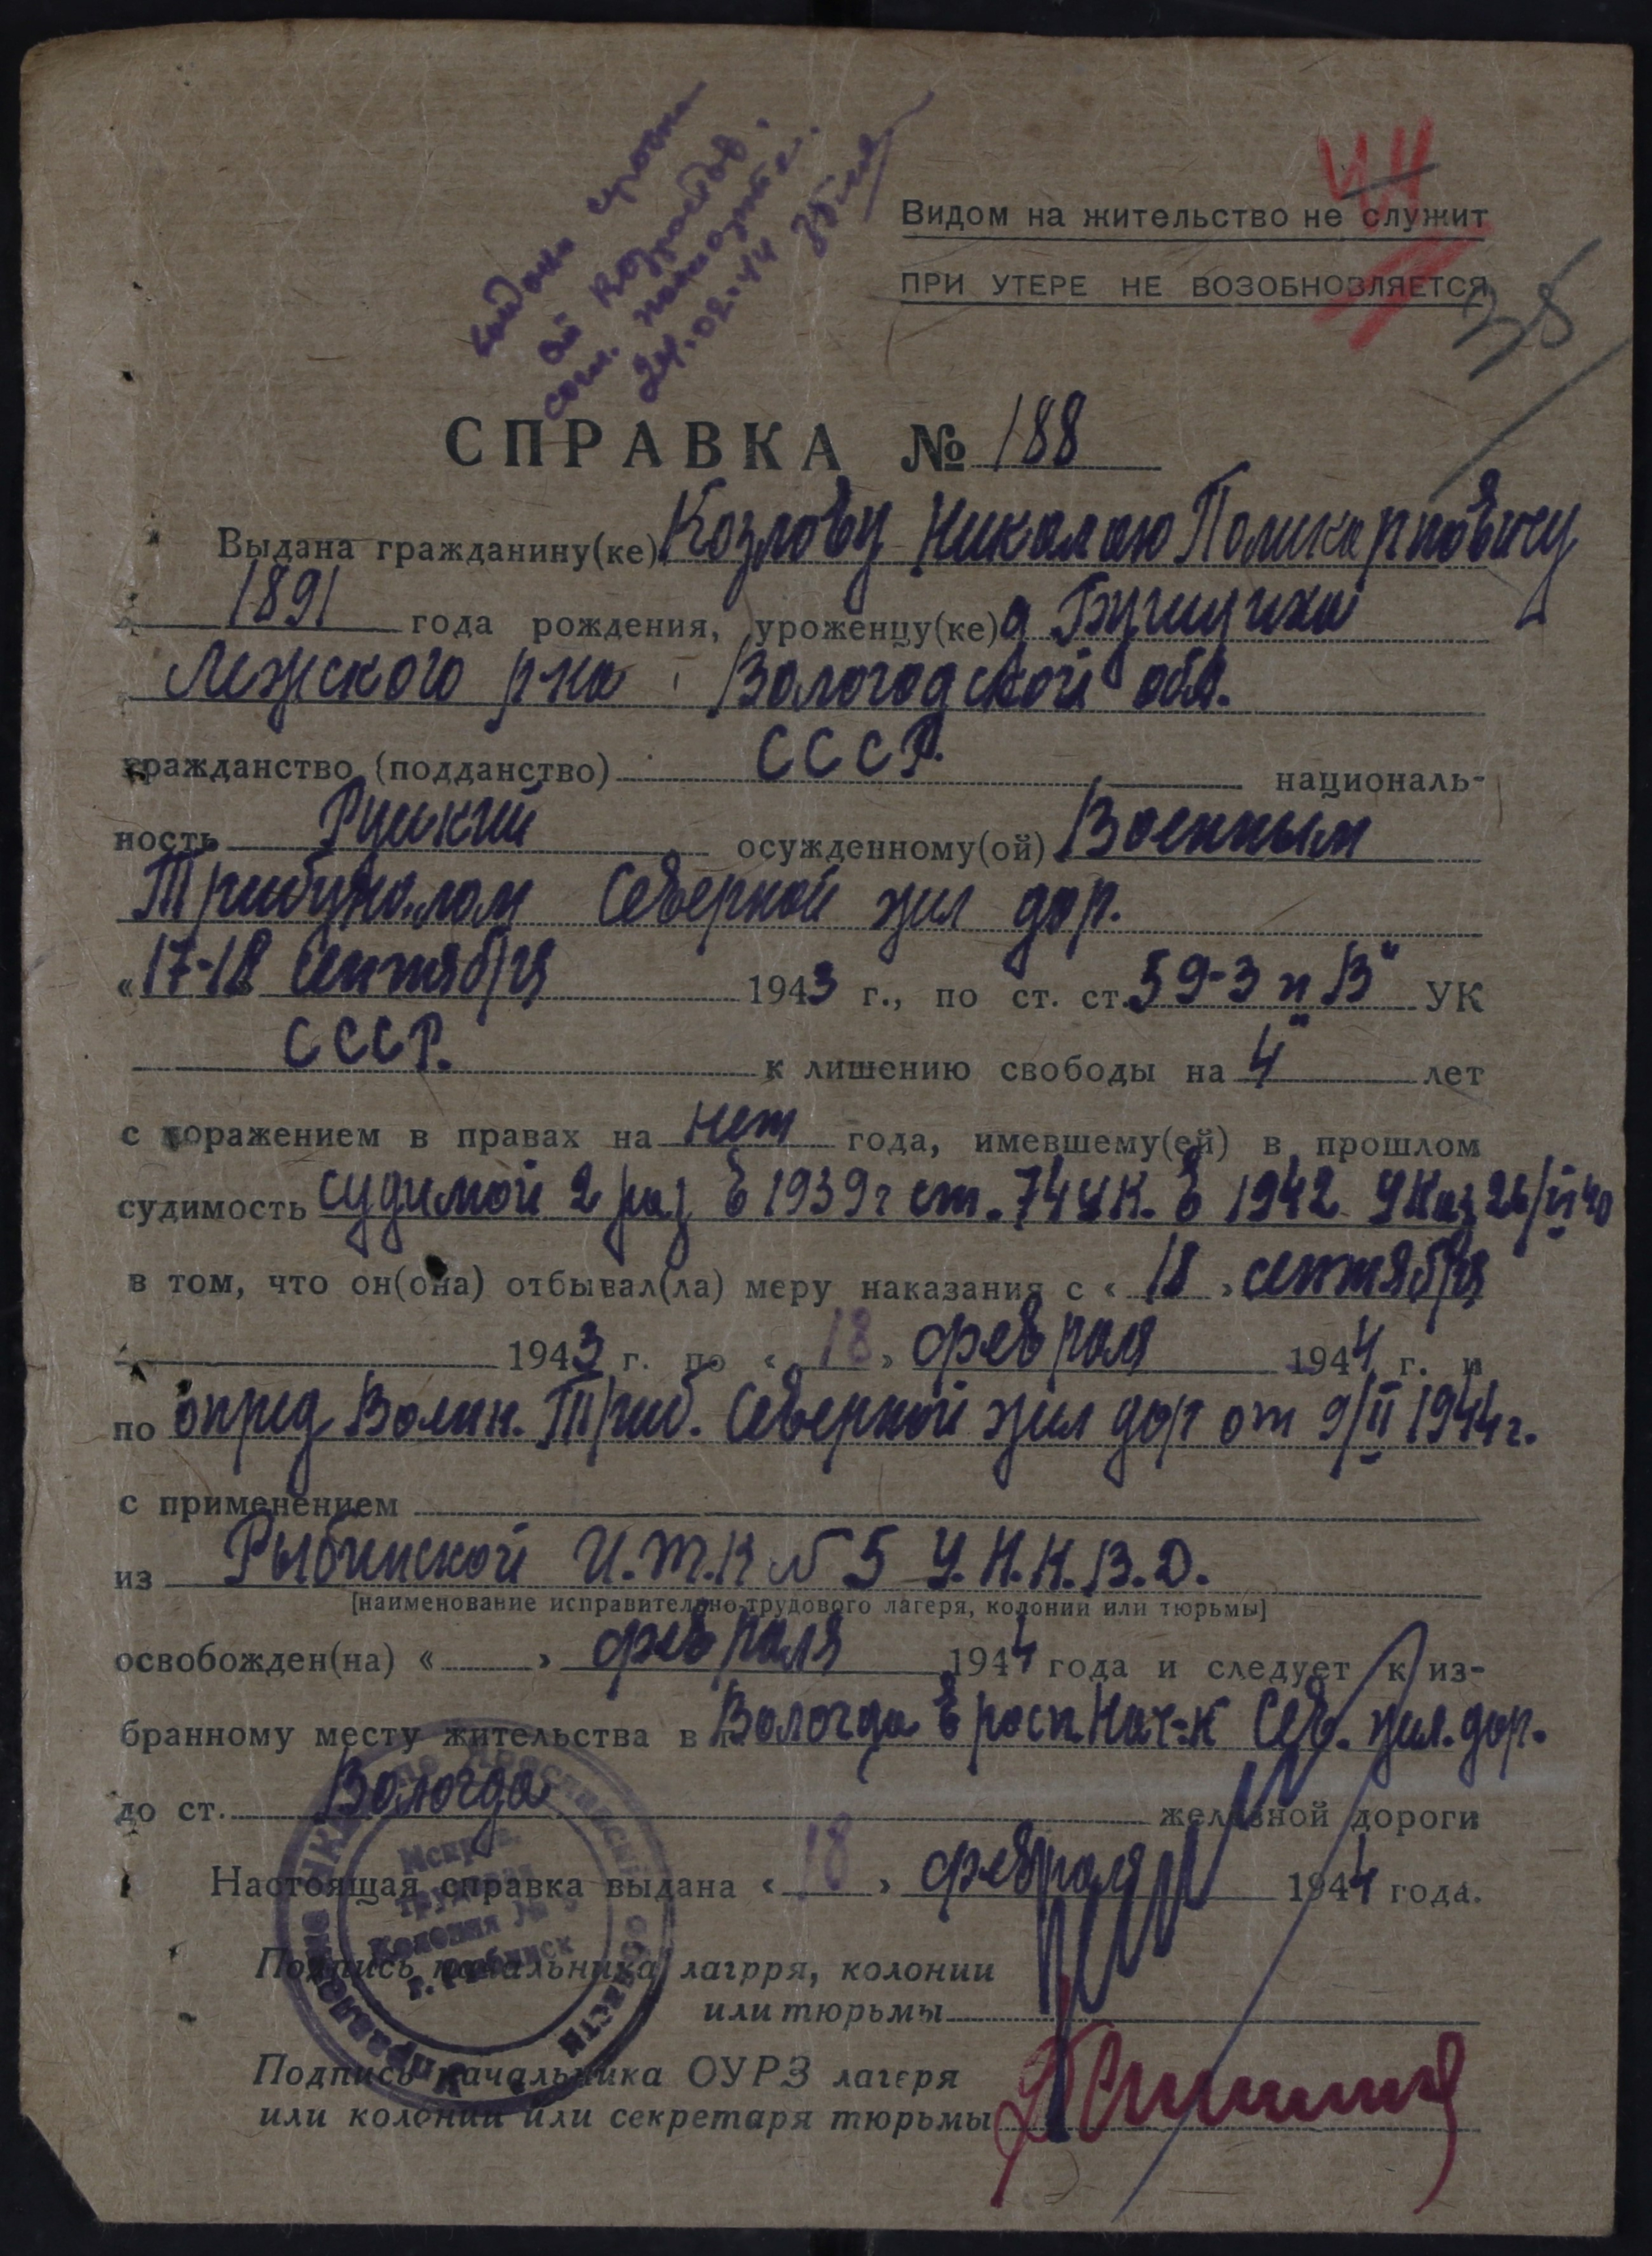 24.02.44
44
Видом на жительство не служит
ПРИ УТЕРЕ НЕ ВОЗОБНОВЛЯЕТСЯ
38
СПРАВКА № 188
Выдана гражданину(ке) Козлову Николаю Поликарповичу
1891 года рождения, уроженцу(ке) д Бушуиха
Лежского р-на Вологодской обл.
гражданство (подданство) СССР. националь-
ность Русский осужденному(ой) Военным
Трибуналом Северной жел дор.
« 17-18 сентября 1943 г., по ст. ст. 59-3 п "В" УК
СССР. к лишению свободы на "4" лет
с поражением в правах на нет года, имевшему(ей) в прошлом
судимость судимой 2 раз в 1939 г ст. 74 УК. в 1942 Указ 26/VI 40
в том, что он(она) отбывал(ла) меру наказания с « 18 » сентября
1943 г. по « 18 » февраля 1944 г. и
по опред Воен. Триб. Северной жел дор от 9/II 1944 г.
с применением
из Рыбинской И.Т.К № 5 У.Н.К.В.Д.
[наименование исправительно-трудового лагеря, колонии или тюрьмы]
освобожден(на) « » февраля 1944 года и следует к из-
бранному месту жительства в Вологда в расп. Нач-к Сев. жел. дор.
до ст. Вологда железной дороги
Настоящая справка выдана « 18 » февраля 1944 года.
Подпись начальника лагрря, колонии
или тюрьмы
Подпись начальника ОУРЗ лагеря
или колонии или секретаря тюрьмы
Управление НКВД по Ярославской области
Исправ.
трудовая
Колония № 5
г. Рыбинск